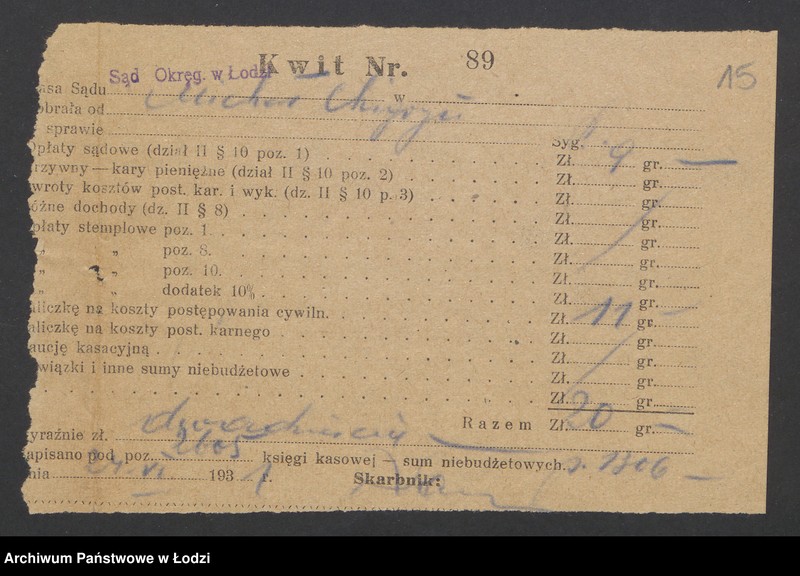 Kwit Nr. 89
15
Sąd Okręg. w Łodzi
asa Sądu w
obrała od
sprawie Syg.
płaty sądowe (dział II § 10 poz. 1) Zł. 9 gr. —
rzywny—kary pieniężne (dział II § 10 poz. 2) Zł. gr.
wroty kosztów post. kar. i wyk. (dz. II § 10 p. 3) Zł. gr.
óżne dochody (dz. II § 8) Zł. gr.
płaty stemplowe poz. 1 Zł. gr.
„ „ poz. 8. Zł. gr.
„ „ poz. 10. Zł. gr.
„ „ dodatek 10% Zł. gr.
aliczkę na koszty postępowania cywiln. Zł. 11 gr. —
aliczkę na koszty post. karnego Zł. gr.
aucję kasacyjną Zł. gr.
wiązki i inne sumy niebudżetowe Zł. gr.
Zł. gr.
Razem Zł. 20 gr. —
yraźnie zł. dwadzieścia —
apisano pod poz. 2605 księgi kasowej — sum niebudżetowych. 1306 —
nia VI 1931 r. Skarbnik:
Archiwum Państwowe w Łodzi